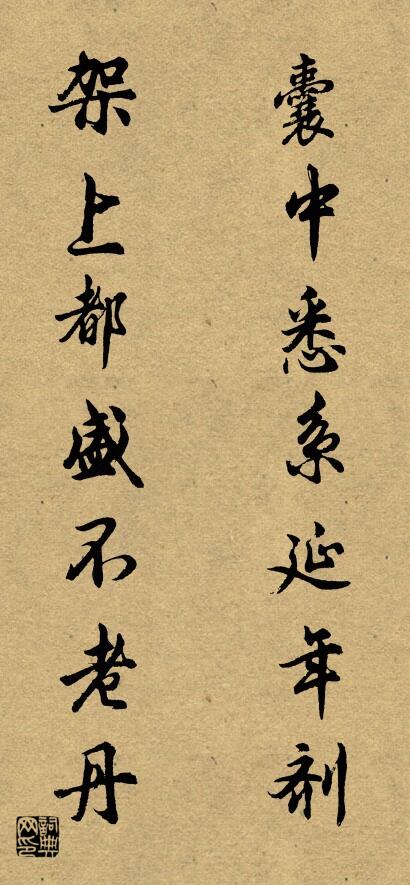 囊中悉系延年剂
架上都盛不老丹
詞典網印